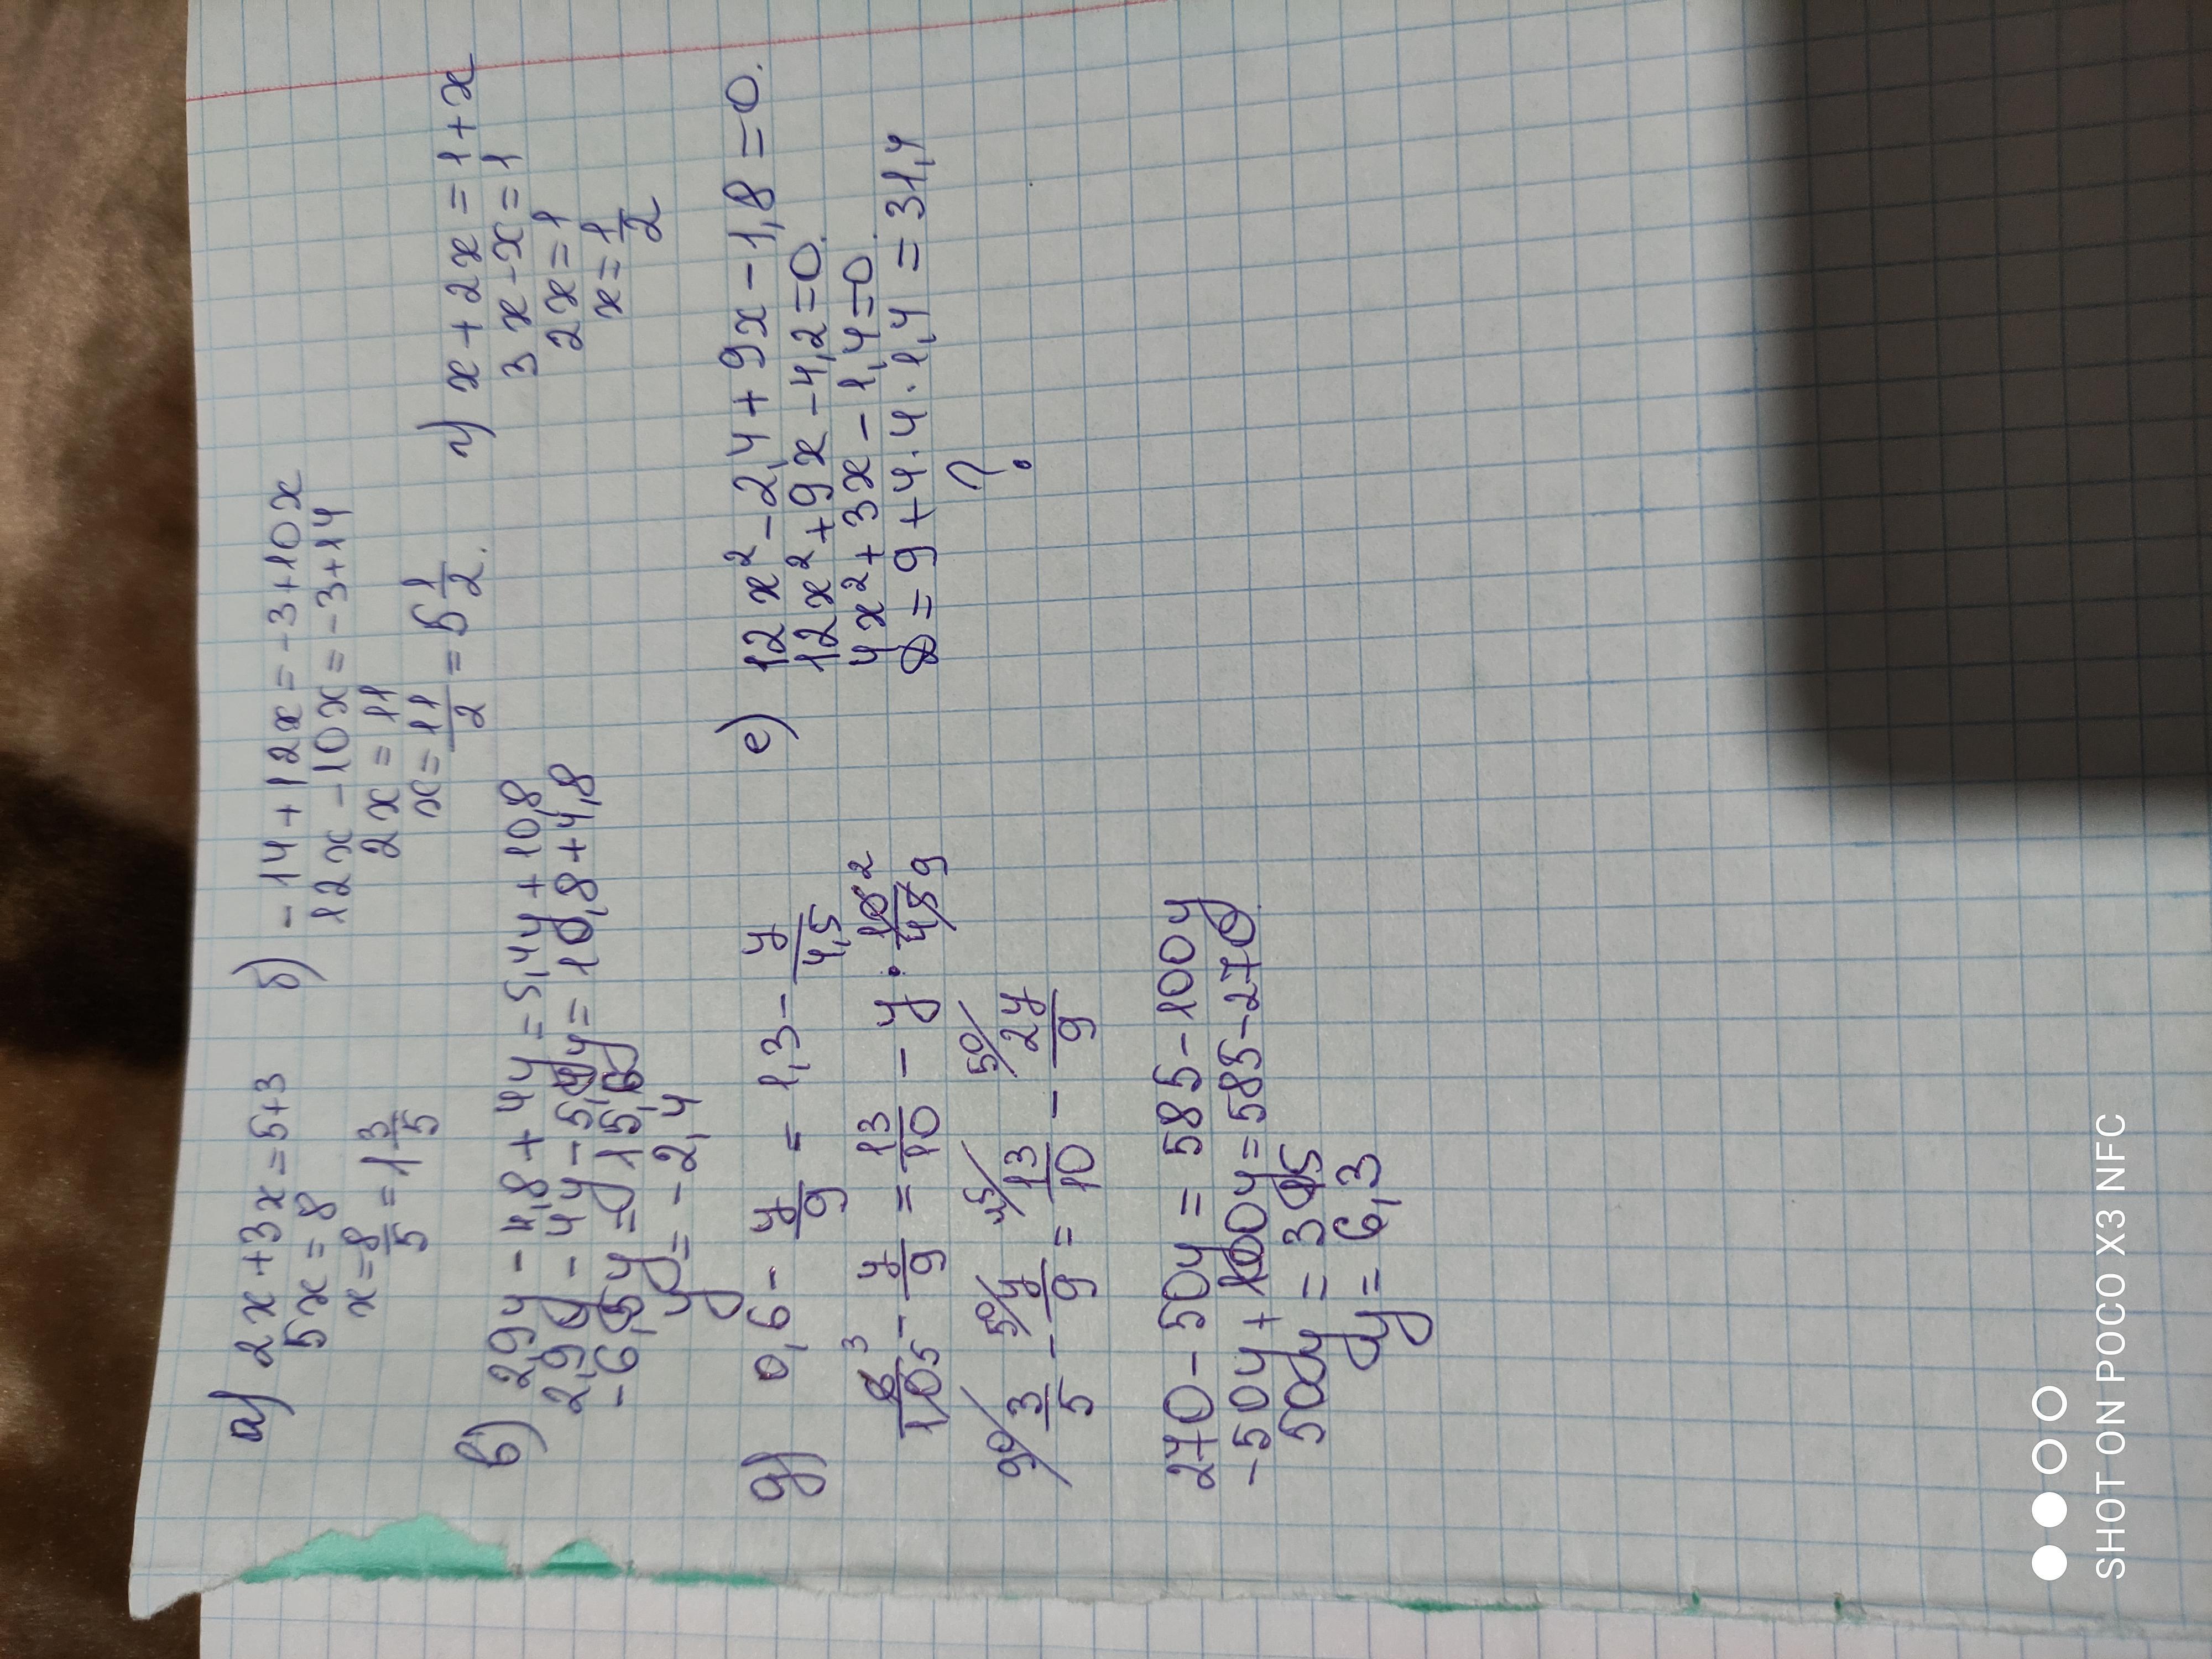 а) 2x+3x=5+3
5x=8
x=8/5=1 3/5
б) -14+12x=-3+10x
12x-10x=-3+14
2x=11
x=11/2=5 1/2.
в) 2,9y-4,8+4y=5,4y+10,8
2,9y-4y-5,4y=10,8+4,8
-6,5y=15,6
y=-2,4
г) x+2x=1+x
3x-x=1
2x=1
x=1/2
д) 0,6-y/9=1,3-y/4,5
6 3/10 5-y/9=13/10-y·10 2/45 9
90/ 3/5-50/ y/9=45/ 13/10-50/ 2y/9
270-50y=585-100y
-50y+100y=585-270
50y=315
y=6,3
е) 12x²-2,4+9x-1,8=0.
12x²+9x-4,2=0.
4x²+3x-1,4=0.
D=9+4·4·1,4=31,4
?
SHOT ON POCO X3 NFC